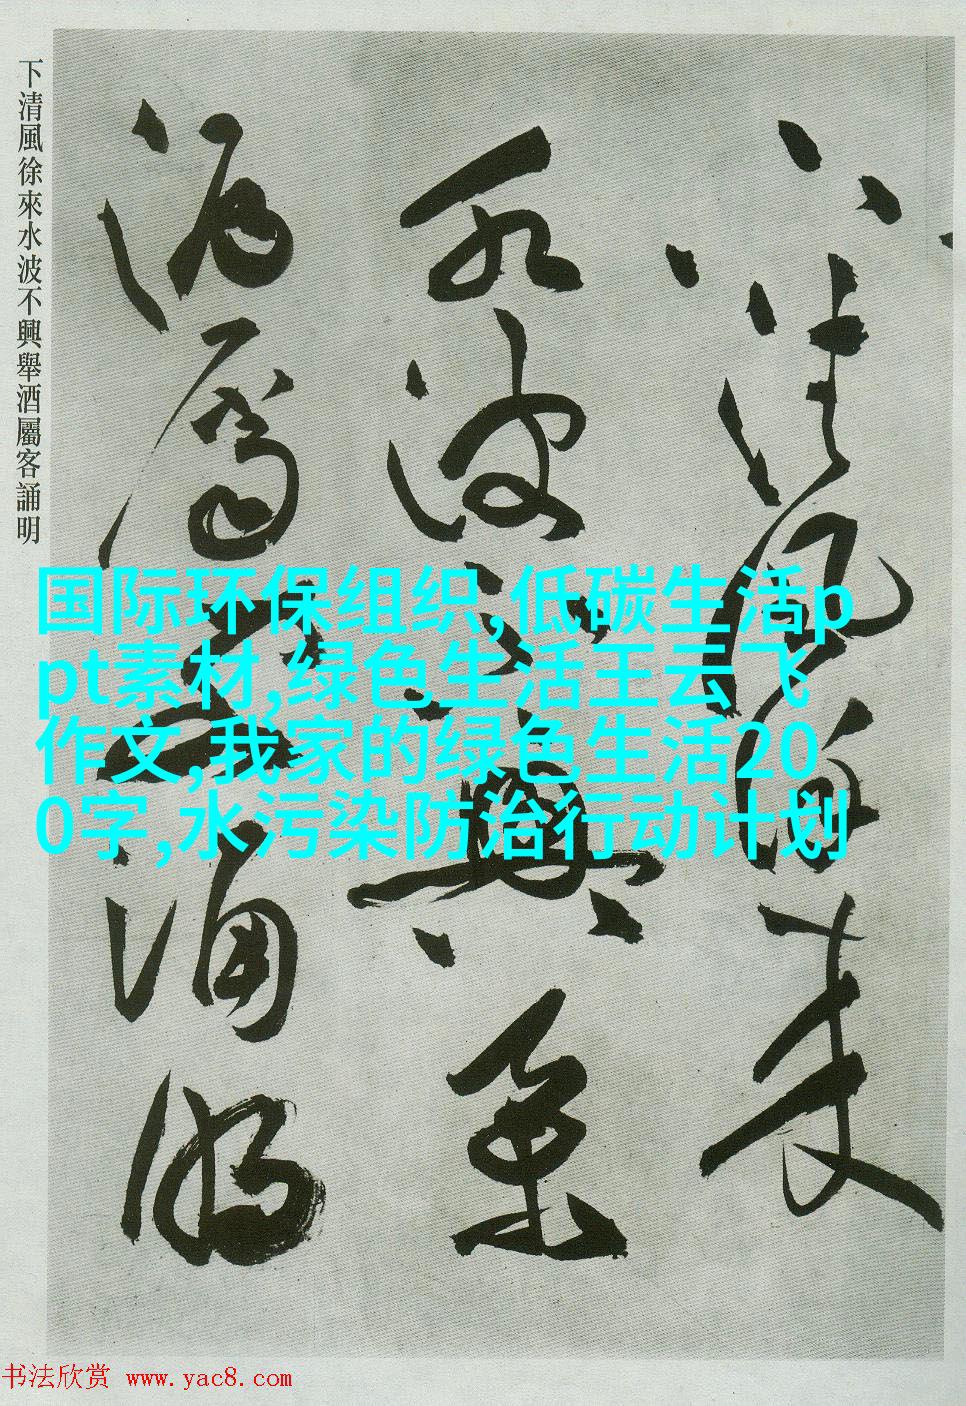 下清風徐來水波不興舉酒屬客誦明
下清風徐来
水波不興舉
酒屬客誦明
国际环保组织,低碳生活p
pt素材,绿色生活王云飞
作文,我家的绿色生活20
0字,水污染防治行动计划
书法欣赏 www.yac8.com